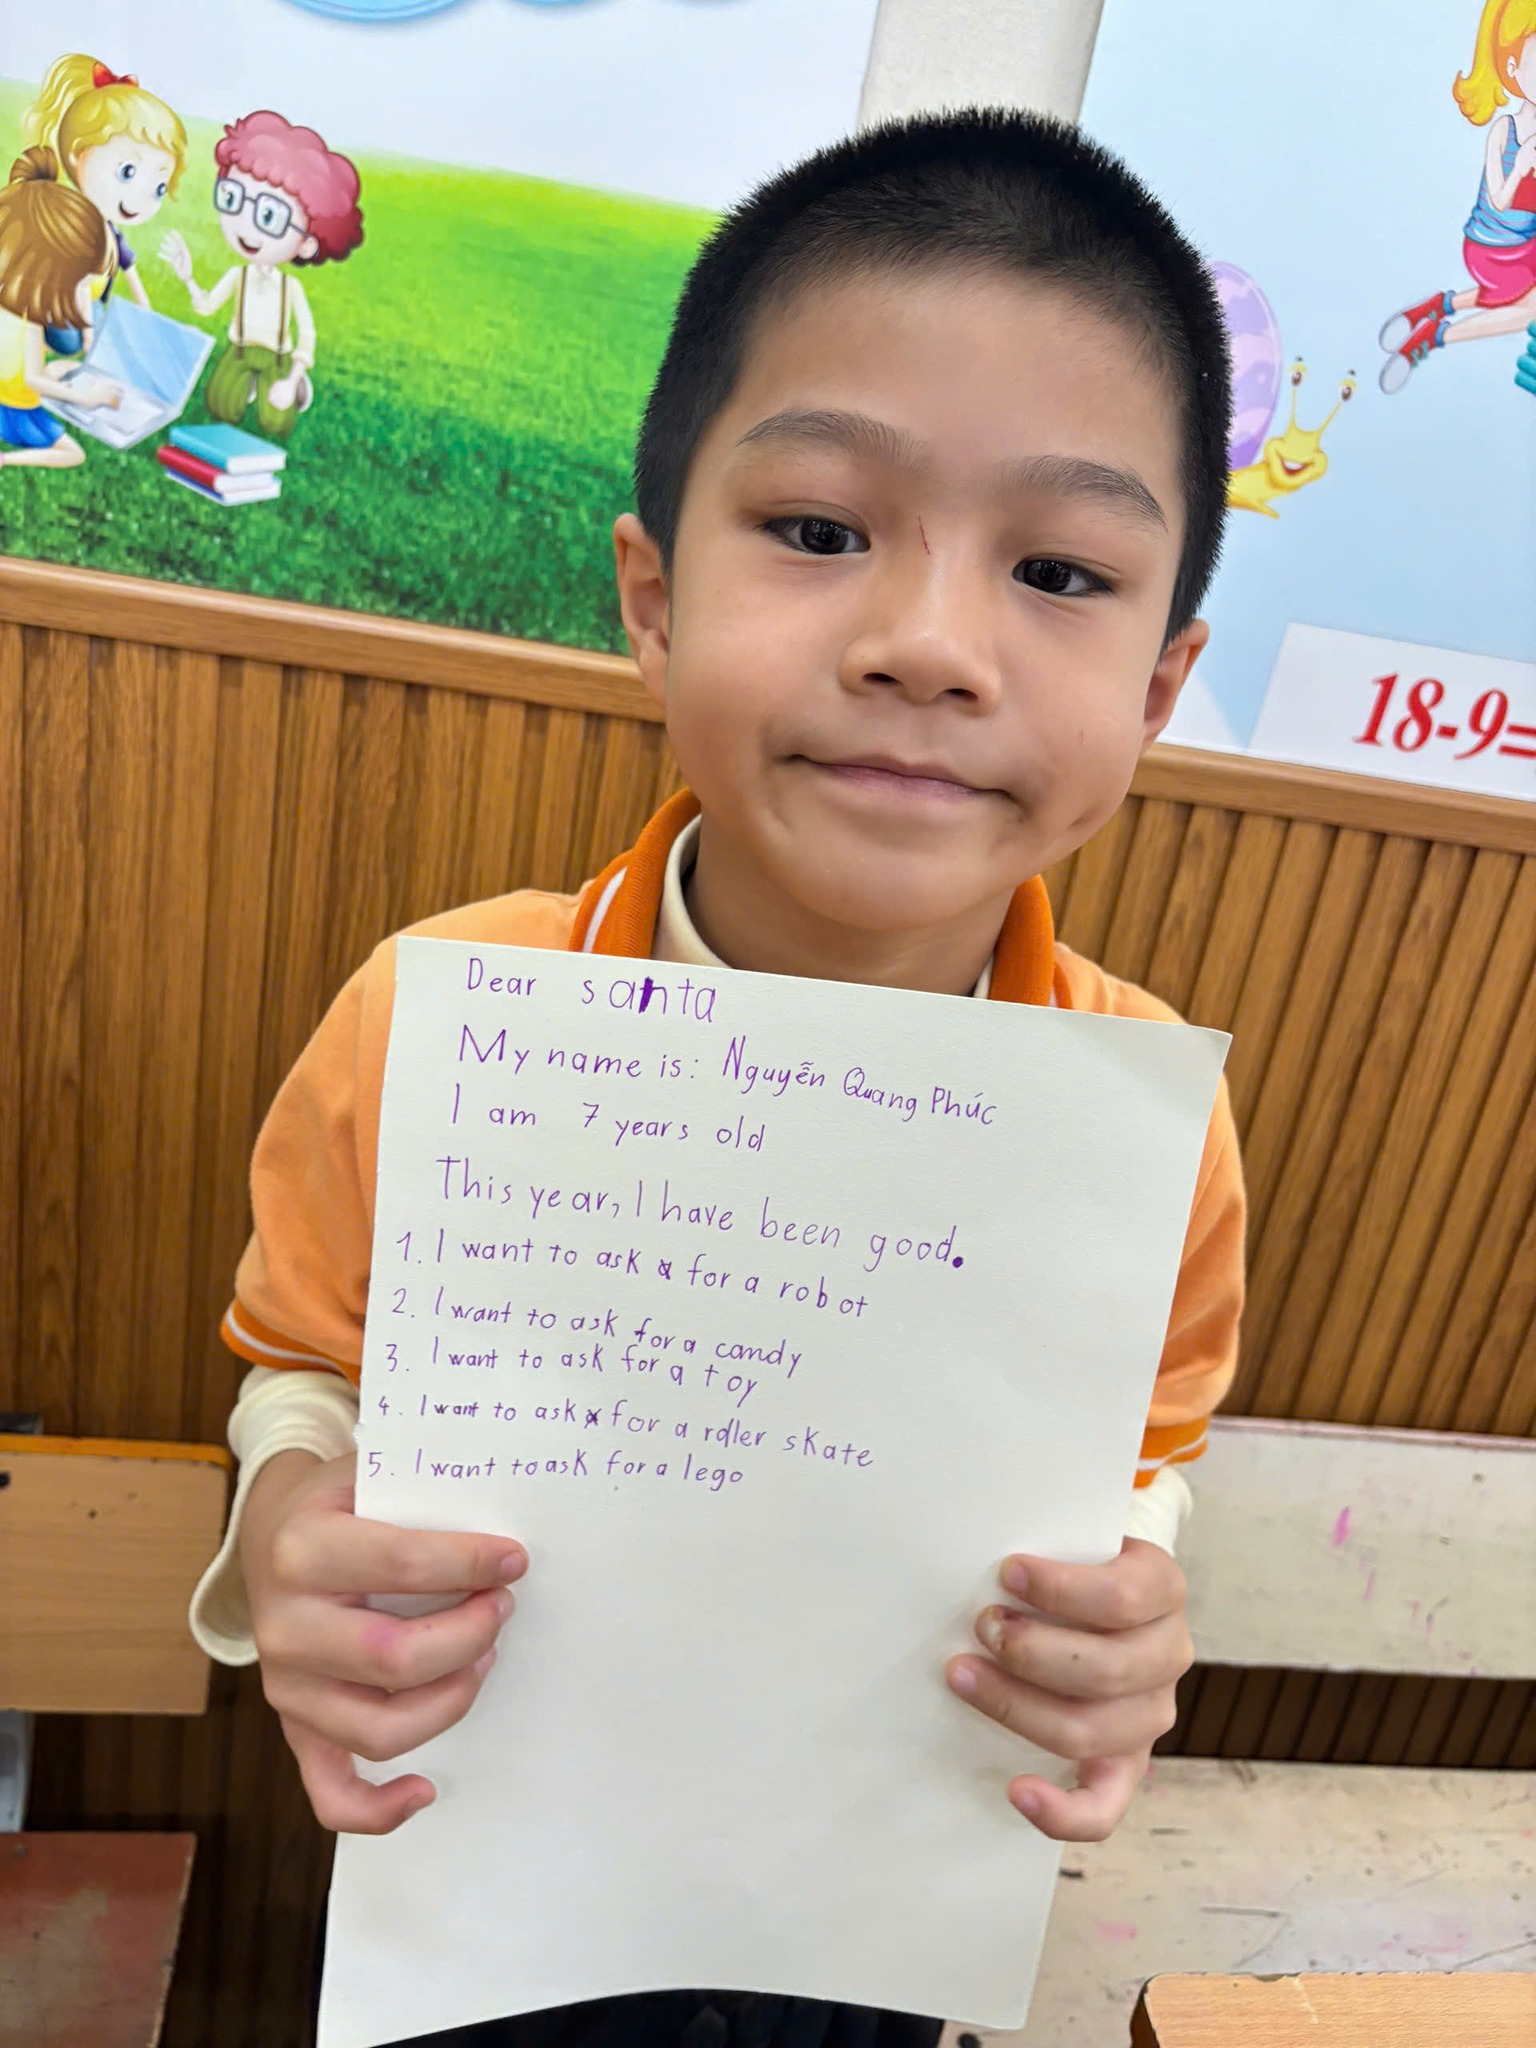 Dear santa
My name is: Nguyễn Quang Phúc
I am 7 years old
This year, I have been good.
1. I want to ask for a robot
2. I want to ask for a candy
3. I want to ask for a toy
4. I want to ask for a roller skate
5. I want to ask for a lego
18-9=